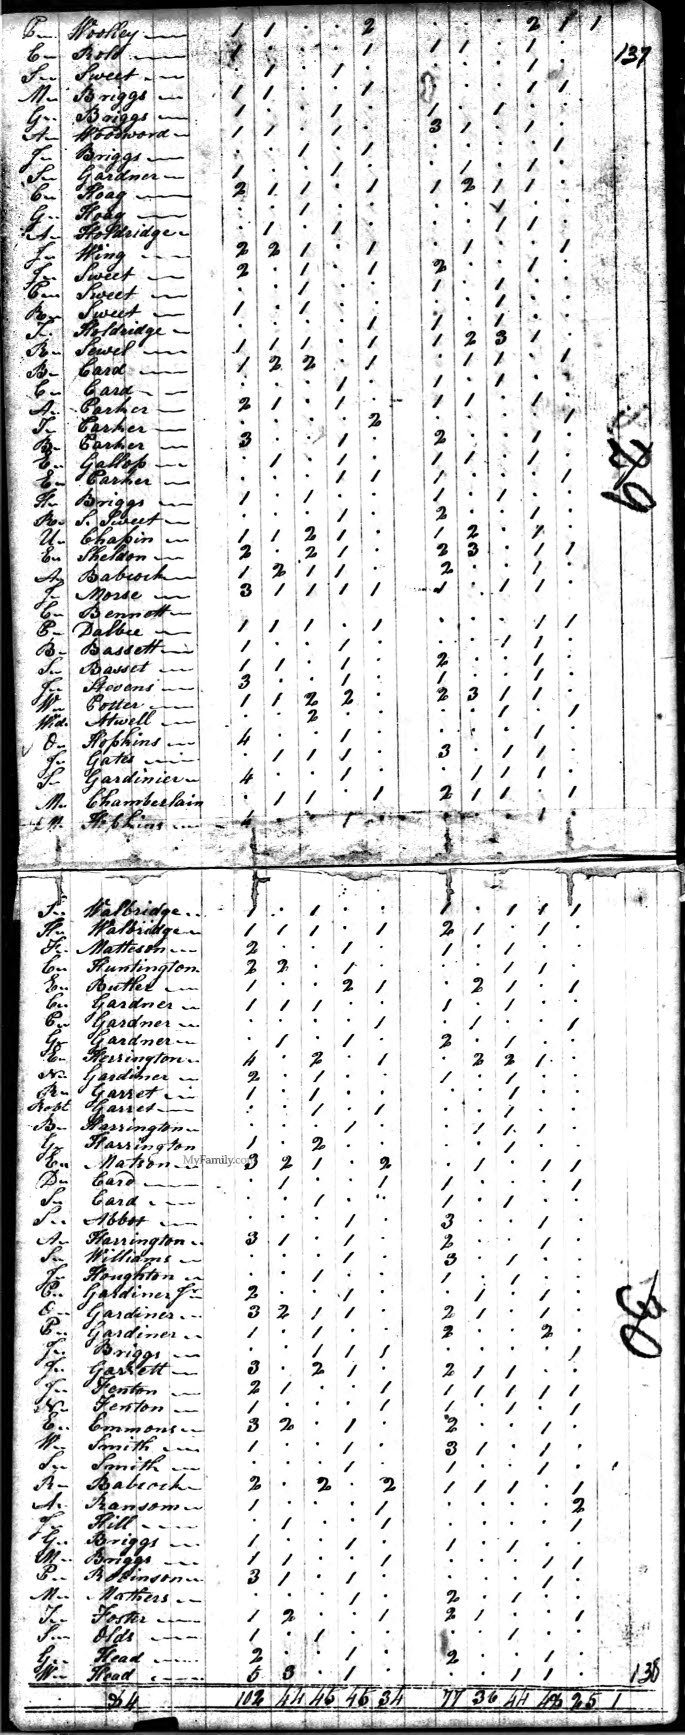 P Woolley 1 1 . . 2 . . . 2 1 1
137
C Rold 1 . . . 1 1 1 . 1 .
S Sweet . 1 . 1 . . . . 1 .
M Briggs 1 1 . . 1 . . . 1 1
G Briggs 1 . . 1 . 1 . 1 . .
A Woodword 1 1 . 1 . 3 1 . 1 .
J Briggs . . 1 . 1 . . . . 1
S Gardner 1 . . 1 . . 1 . 1 .
C Hoag 2 1 1 . 1 1 2 1 1 .
G Hoag . . 1 . . . . 1 . .
A Holdridge . 1 . 1 . . . 1 1 .
J Wing 2 2 1 . 1 . 1 . . 1
J Sweet 2 . 1 . 1 2 . . 1 .
Sweet . . 1 . . 1 . 1 . .
R Sweet 1 . 1 . . . . 1 . .
T Holdridge . . . . 1 1 . 1 . .
R Sewel 1 1 1 . 1 1 2 3 1 .
B Card 1 2 2 . 1 . 1 1 . 1
C Card . . . 1 . 1 . 1 . .
A Carher 2 1 . 1 . 1 1 . 1 .
T Carher . . . . 2 . . . . 1
B Carher 3 . . 1 . 2 . . 1 .
E Gallop . 1 . 1 . 1 1 . 1 .
E Parher . . . 1 1 . . . . 1
H Briggs 1 . 1 . . 1 . 1 . .
Ro S. Sweet . . . 1 . 2 . . 1 .
U Chapin 1 1 2 1 . 1 2 . 1 .
E Sheldon 2 . 2 1 . 2 3 . 1 1
A Babcock 1 2 1 1 . 2 . . 1 .
J Morse 3 1 1 1 1 1 . 1 1 .
C Bennott
P Dalbee 1 1 1 . 1 . . . 1 1
B Bassett 1 . . 1 . . . 1 1 .
S Basset 1 1 . 1 . 2 . . 1 .
J Stevens 3 . . 1 . 1 . . 1 .
W Potter 1 1 2 2 . 2 3 1 1 .
Wid. Atwell . . 2 . . . . 1 . 1
O Hopkins 4 . . 1 . . . . 1 .
J Gates . 1 1 1 . 3 . 1 1 .
S Gardinier 4 . . 1 . . 1 1 1 .
M Chamberlain . 1 1 . 1 2 1 1 . 1
M Hopkins 4 . . 1 . . . . 1 .
29
S Walbridge 1 . 1 . . 1 . 1 1 1
H Walbridge 1 1 1 . 1 2 1 . 1 .
F Matteson 2 . . 1 . 1 . 1 . .
C Huntington 2 2 . 1 . . . 1 1 .
E Butler 1 . . 2 1 . 2 1 . 1
C Gardner 1 1 1 . . 1 . 1 . .
P Gardner . . . . 1 . 1 . . 1
G Gardner . 1 . 1 . 2 . 1 . .
E Herrington 4 . 2 . 1 . 2 2 1 .
N Gardiner 2 . 1 . . 1 . 1 . .
R Garret 1 . 1 . . . . 1 . .
Robt Garret . . 1 . 1 . . 1 . .
B Harrington . . . 1 . . 1 1 1 .
G Harrington 1 . 2 . . . . 1 . .
MyFamily.com
E Matson 3 2 1 . 2 . 1 . 1 1
D Card . 1 . . 1 1 . . . 1
S Card . . 1 . . 1 . 1 . .
S Abbot . . . 1 . 3 . . 1 .
A Harrington 3 1 . 1 . 2 . . 1 .
S Williams . . . 1 . 3 . 1 . .
J Houghton . . 1 . . 1 . 1 . .
C Gardiner Jr 2 . . 1 . . 1 . 1 .
O Gardiner 3 2 1 1 . 2 1 . 1 .
P Gardiner 1 . 1 . . 2 . . 2 .
J Briggs . . 1 1 1 . . . . 1
J Garrett 3 . 2 1 . 2 1 1 . .
J Fenton 2 1 . . 1 1 1 1 1 1
N Fenton 1 . . . 1 1 . 1 . 1
E Emmons 3 2 . 1 . 2 . . 1 .
W Smith 1 . . 1 . 3 1 . 1 .
S Smith . . . 1 . 1 . . 1 .
R Babcock 2 . 2 . 2 1 1 1 . 1
A Ransom 1 . . . 1 . . . . 2
J Hill . 1 . . 1 . . . . 1
G Briggs 1 . . 1 . 1 . 1 . .
M Briggs 1 1 . . 1 . . . 1 1
P Robinson 3 1 . 1 . . . . 1 .
M Mathers . . . 1 . 2 . 1 . .
T Foster 1 2 . . 1 2 1 . . 1
S Olds 1 . 1 . . . . 1 . .
G Head 2 . . 1 . 2 . . 1 .
W Head 5 3 . 1 . . . 1 1 .
30
138
84 102 44 45 45 34 77 36 44 48 25 1